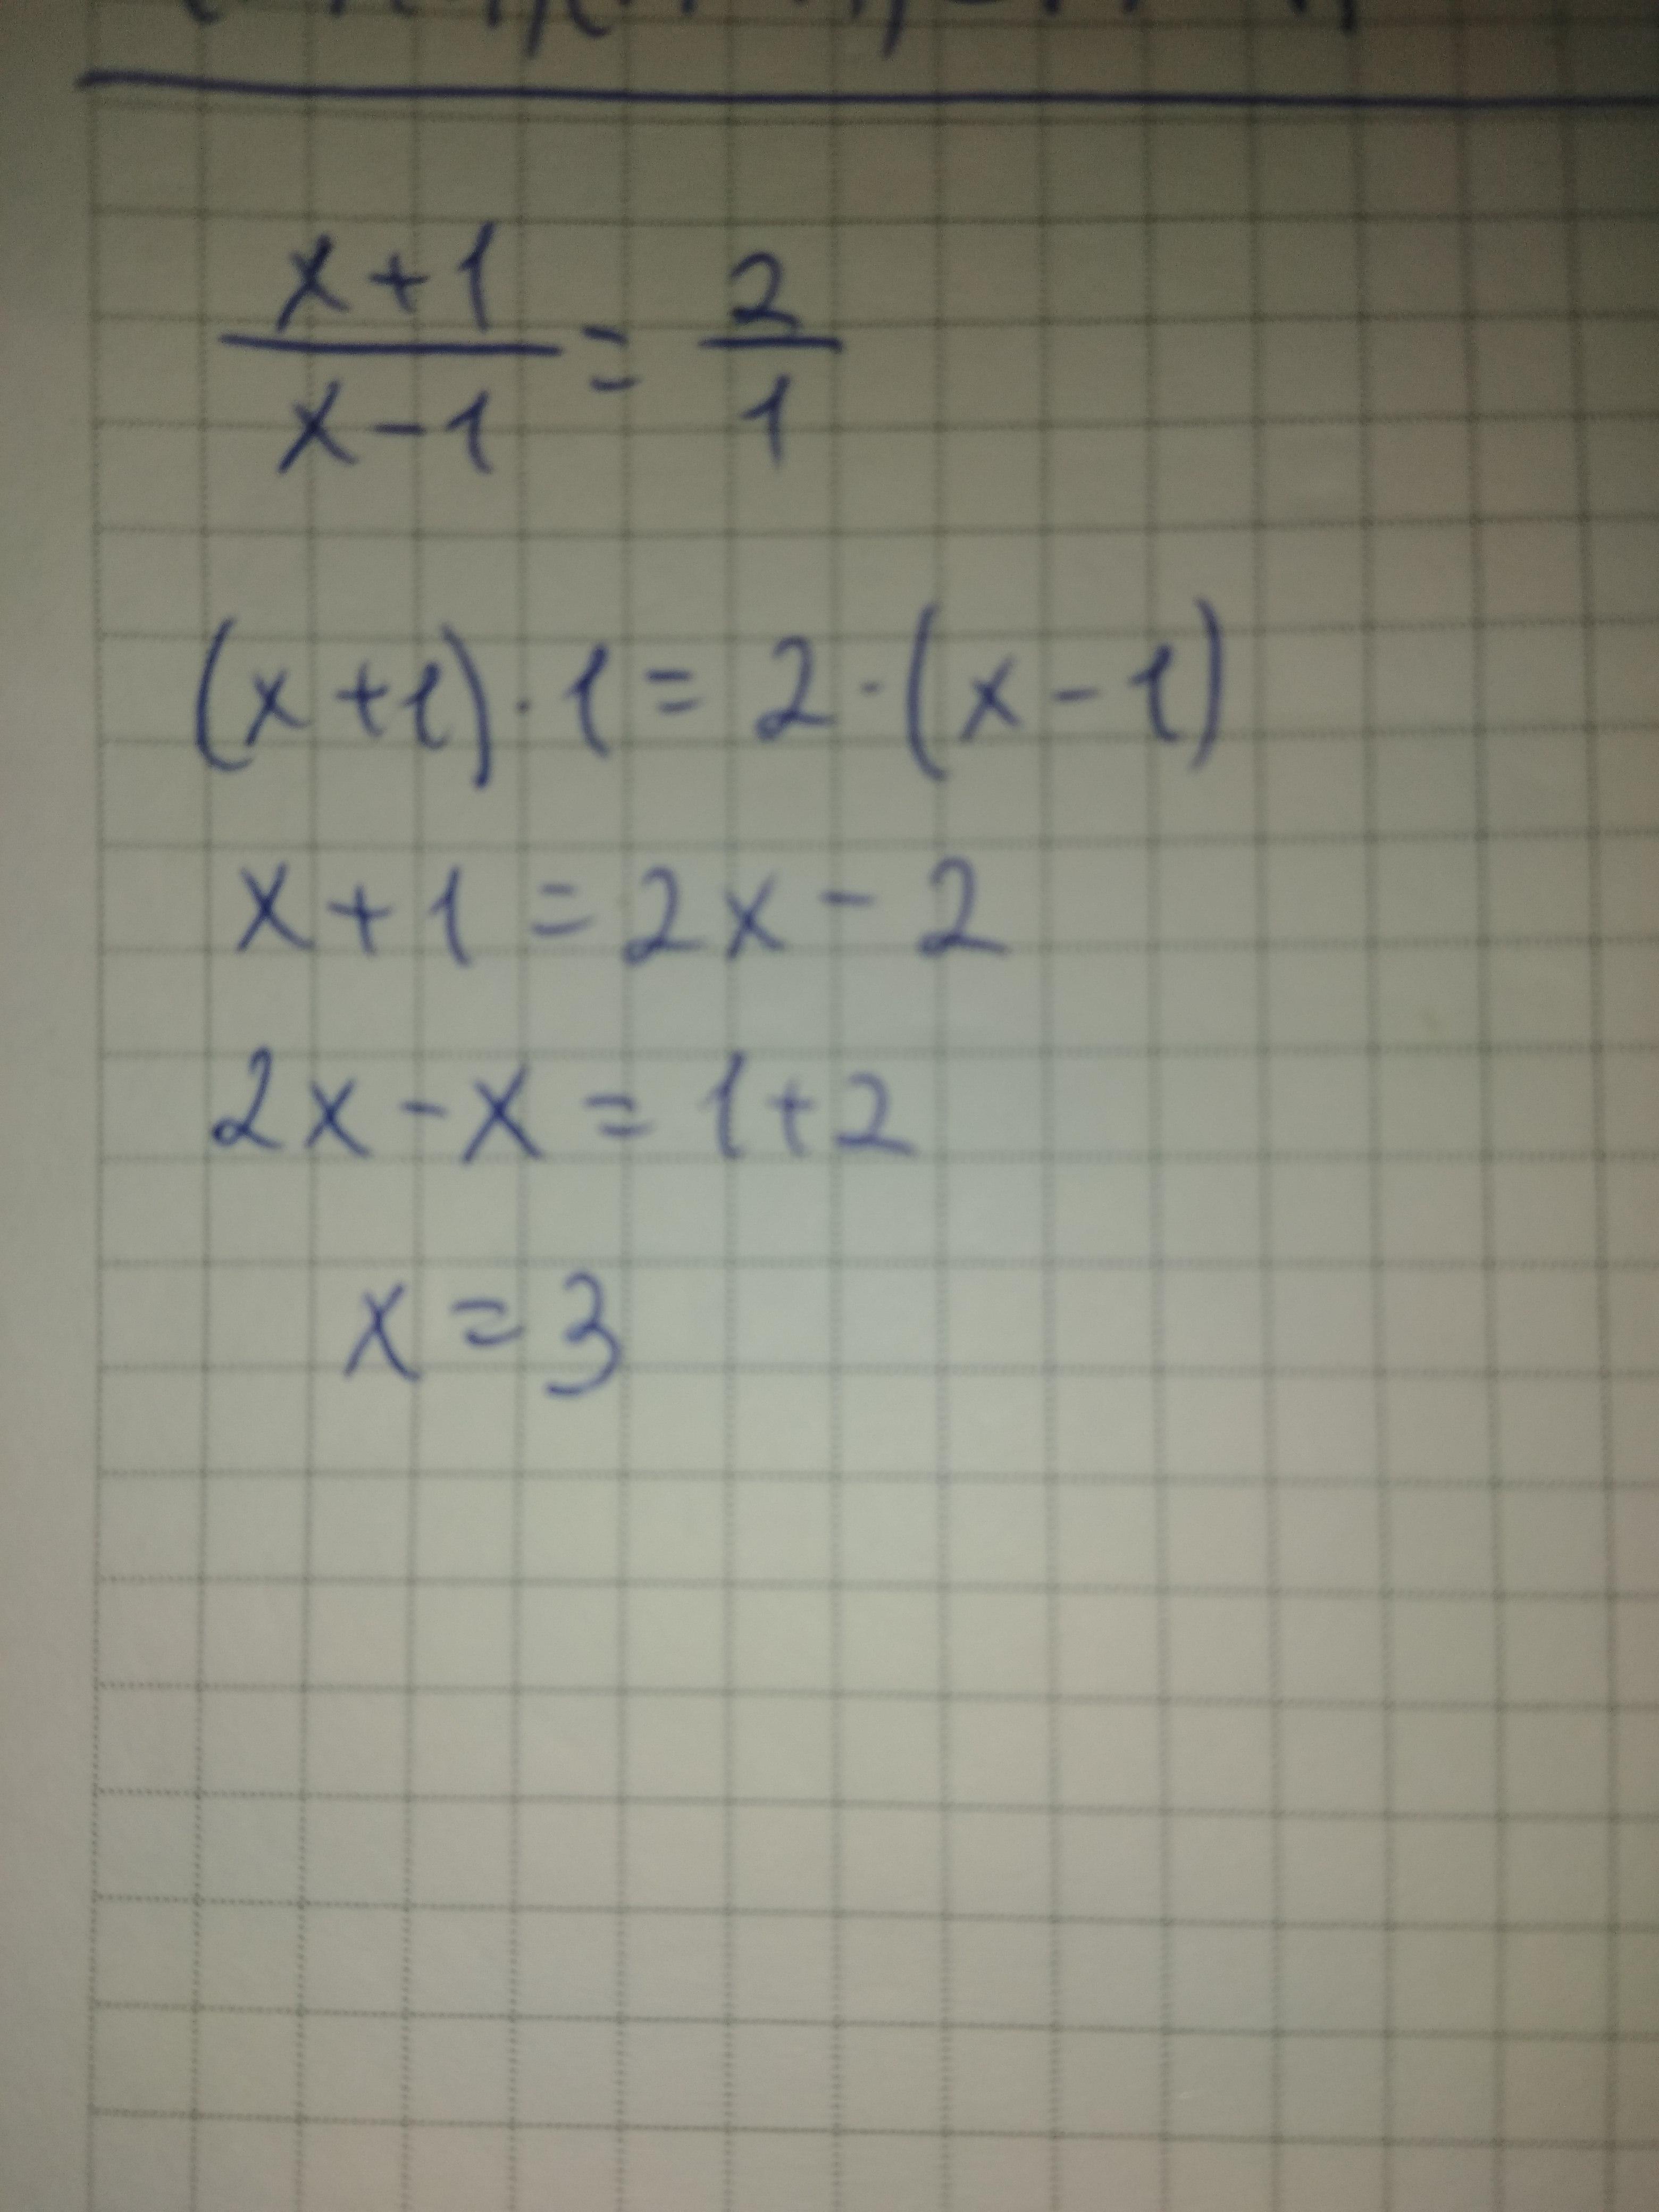 x+1
x-1 = 2
1
(x+1)·1=2·(x-1)
x+1=2x-2
2x-x=1+2
x=3